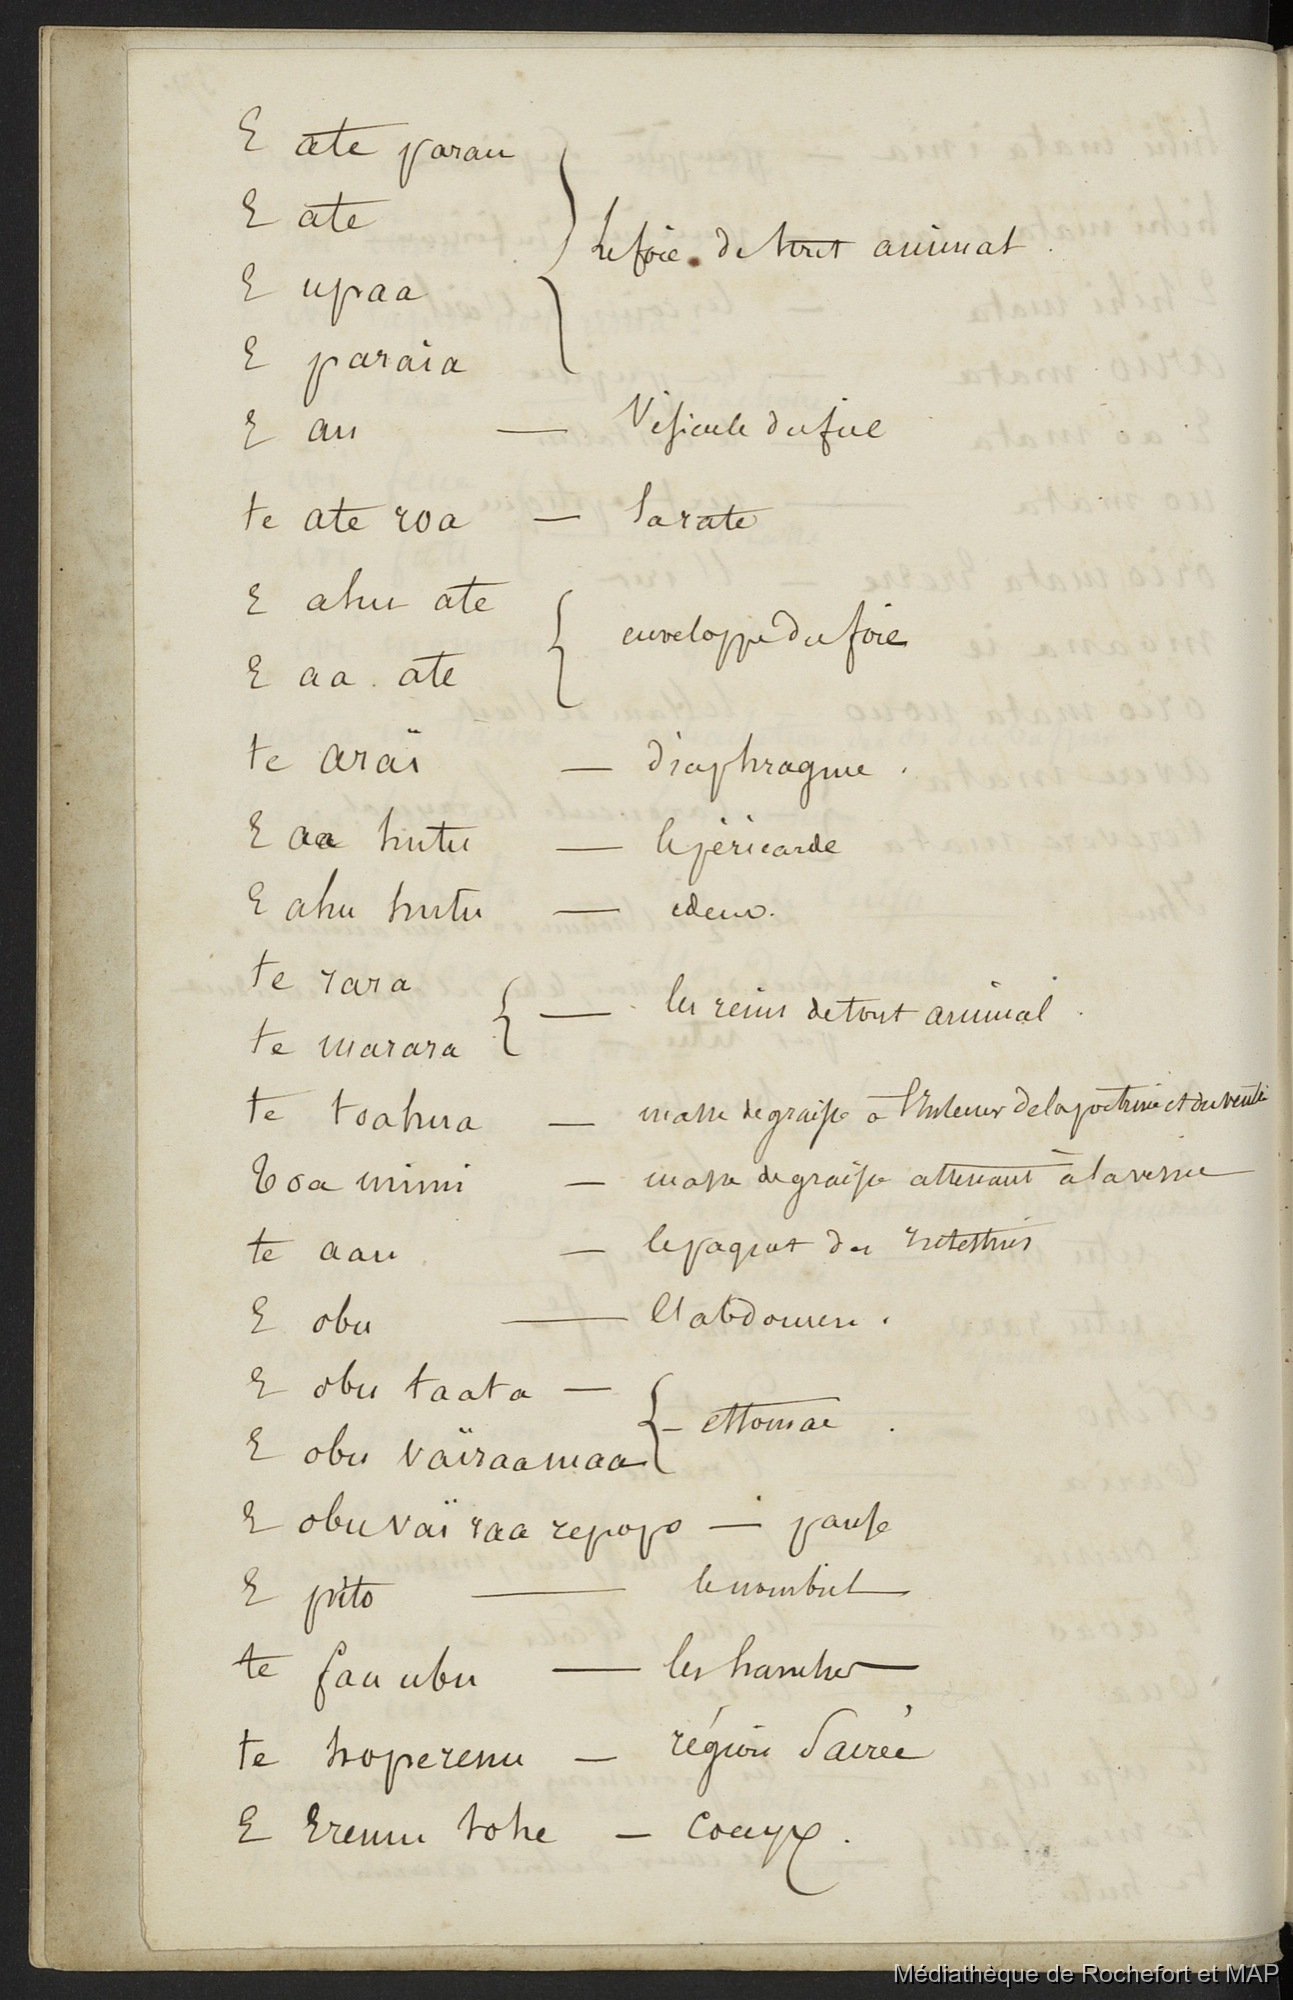 E ate parau
E ate
E upaa
E paraia
} le foie de tout animal.
E au — Vésicule du fiel
te ate roa — la rate
E ahu ate
E aa ate
{ enveloppe du foie
te araï — diaphragme.
E aa hutu — le péricarde
E ahu hutu — idem.
te rara
te marara
{ — les reins de tout animal.
te toahua — masse de graisse à l'intérieur de la poitrine et du ventre
toa mimi — masse de graisse attenant à la vessie
te aau — le paquet des intestins
E obu — l'abdomen.
E obu taata —
E obu vaïraamaa
{ — estomac.
E obu vaï raa repopo — panse
E pito — le nombril
te fau ubu — les hanches
te hoperenu — région sacrée
E Eremu hohe — coccyx.
Médiathèque de Rochefort et MAP